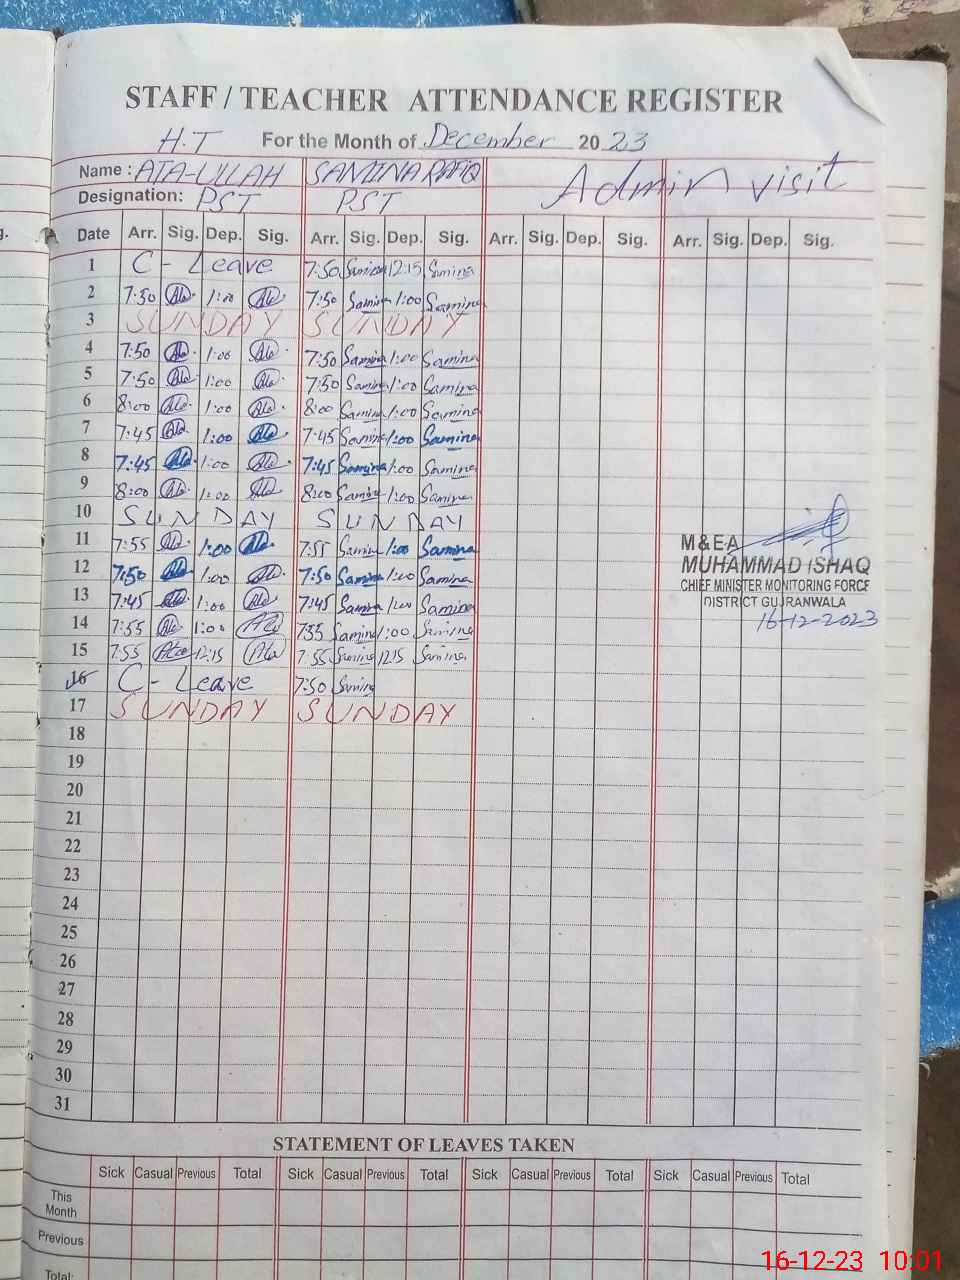 STAFF / TEACHER ATTENDANCE REGISTER
H.T For the Month of December 2023
Name : ATA-ULLAH SAMINA RAFIQ Admin visit
Designation: PST PST
Date Arr. Sig. Dep. Sig. Arr. Sig. Dep. Sig. Arr. Sig. Dep. Sig. Arr. Sig. Dep. Sig.
1 C - Leave 7:50 Samina 12:15 Samina
2 7:50 Ata 1:00 Ata 7:50 Samina 1:00 Samina
3 SUNDAY SUNDAY
4 7:50 Ata 1:00 Ata 7:50 Samina 1:00 Samina
5 7:50 Ata 1:00 Ata 7:50 Samina 1:00 Samina
6 8:00 Ata 1:00 Ata 8:00 Samina 1:00 Samina
7 7:45 Ata 1:00 Ata 7:45 Samina 1:00 Samina
8 7:45 Ata 1:00 Ata 7:45 Samina 1:00 Samina
9 8:00 Ata 1:00 Ata 8:00 Samina 1:00 Samina
10 SUNDAY SUNDAY
11 7:55 Ata 1:00 Ata 7:55 Samina 1:00 Samina
12 7:50 Ata 1:00 Ata 7:50 Samina 1:00 Samina
13 7:45 Ata 1:00 Ata 7:45 Samina 1:00 Samina
14 7:55 Ata 1:00 Ata 7:55 Samina 1:00 Samina
15 7:55 Ata 12:15 Ata 7:55 Samina 12:15 Samina
16 C - Leave 7:50 Samina
17 SUNDAY SUNDAY
18
19
20
21
22
23
24
25
26
27
28
29
30
31
M&EA
MUHAMMAD ISHAQ
CHIEF MINISTER MONITORING FORCE
DISTRICT GUJRANWALA
16-12-2023
STATEMENT OF LEAVES TAKEN
Sick Casual Previous Total Sick Casual Previous Total Sick Casual Previous Total Sick Casual Previous Total
This
Month
Previous
Total:
16-12-23 10:01